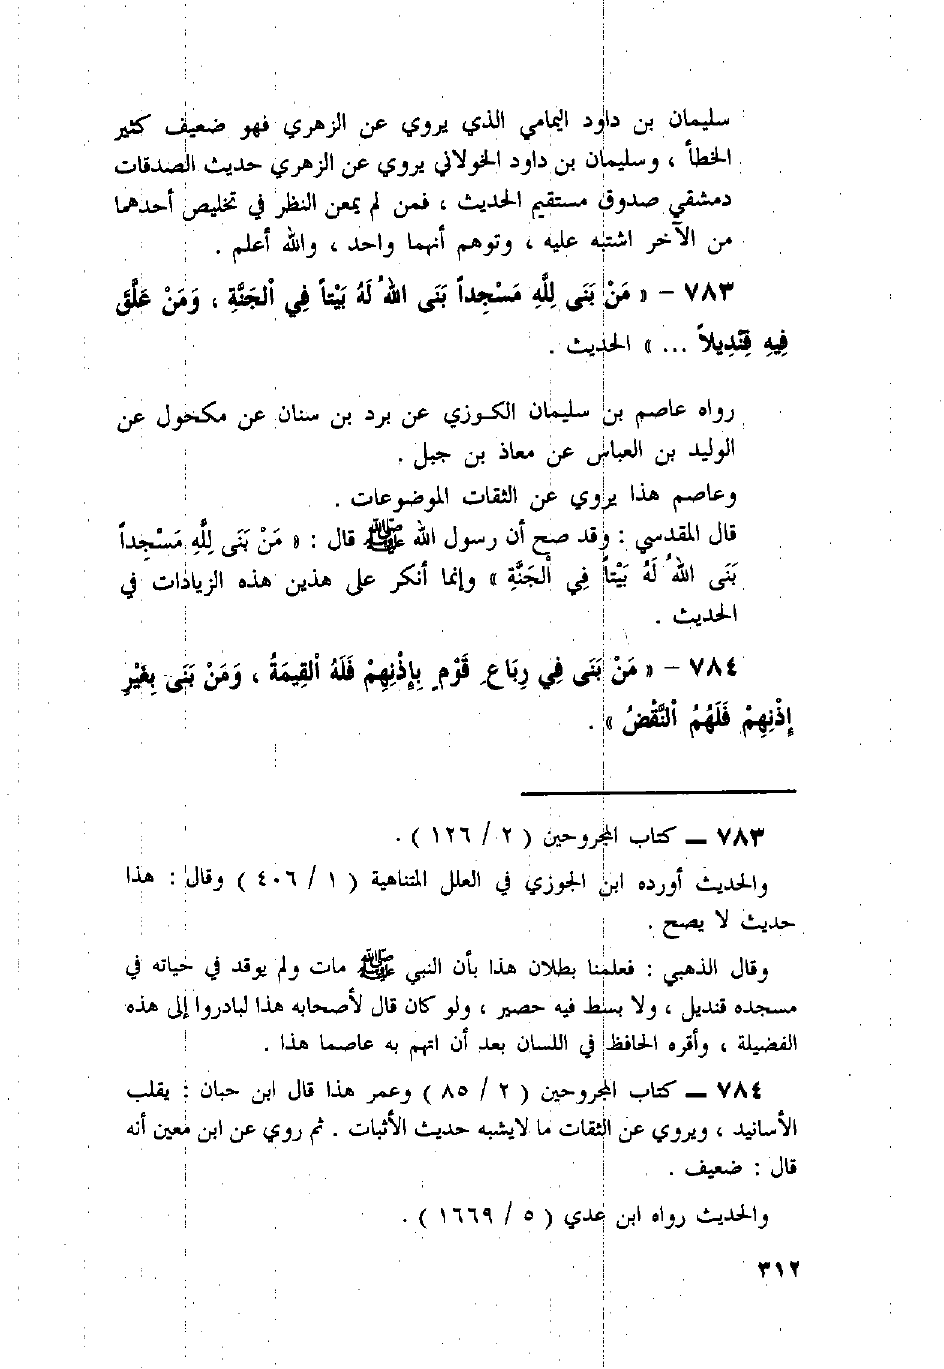 سليمان بن داود اليمامي الذي يروي عن الزهري فهو ضعيف كثير
الخطأ ، وسليمان بن داود الخولاني يروي عن الزهري حديث الصدقات
دمشقي صدوق مستقيم الحديث ، فمن لم يمعن النظر في تخليص أحدهما
من الآخر اشتبه عليه ، وتوهم أنهما واحد ، والله أعلم .
٧٨٣ – « مَنْ بَنَى لِلَّهِ مَسْجِداً بَنَى اللهُ لَهُ بَيْتاً فِي ٱلجَنَّةِ ، وَمَنْ عَلَّقَ
فِيهِ قِنْدِيلاً ... » الحديث .
رواه عاصم بن سليمان الكوزي عن برد بن سنان عن مكحول عن
الوليد بن العباس عن معاذ بن جبل .
وعاصم هذا يروي عن الثقات الموضوعات .
قال المقدسي : وقد صح أن رسول الله ﷺ قال : « مَنْ بَنَى لِلَّهِ مَسْجِداً
بَنَى اللهُ لَهُ بَيْتاً فِي ٱلجَنَّةِ » وإنما أنكر على هذين هذه الزيادات في
الحديث .
٧٨٤ – « مَنْ بَنَى فِي رِبَاعِ قَوْمٍ بِإِذْنِهِمْ فَلَهُ ٱلقِيمَةُ ، وَمَنْ بَنَى بِغَيْرِ
إِذْنِهِمْ فَلَهُمُ ٱلنَّقْضُ » .
٧٨٣ ــ كتاب المجروحين ( ٢ / ١٢٦ ) .
والحديث أورده ابن الجوزي في العلل المتناهية ( ١ / ٤٠٦ ) وقال : هذا
حديث لا يصح .
وقال الذهبي : فعلمنا بطلان هذا بأن النبي ﷺ مات ولم يوقد في حياته في
مسجده قنديل ، ولا بسط فيه حصير ، ولو كان قال لأصحابه هذا لبادروا إلى هذه
الفضيلة ، وأقره الحافظ في اللسان بعد أن اتهم به عاصما هذا .
٧٨٤ ــ كتاب المجروحين ( ٢ / ٨٥ ) وعمر هذا قال ابن حبان : يقلب
الأسانيد ، ويروي عن الثقات ما لايشبه حديث الأثبات . ثم روي عن ابن معين أنه
قال : ضعيف .
والحديث رواه ابن عدي ( ٥ / ١٦٦٩ ) .
٣١٢